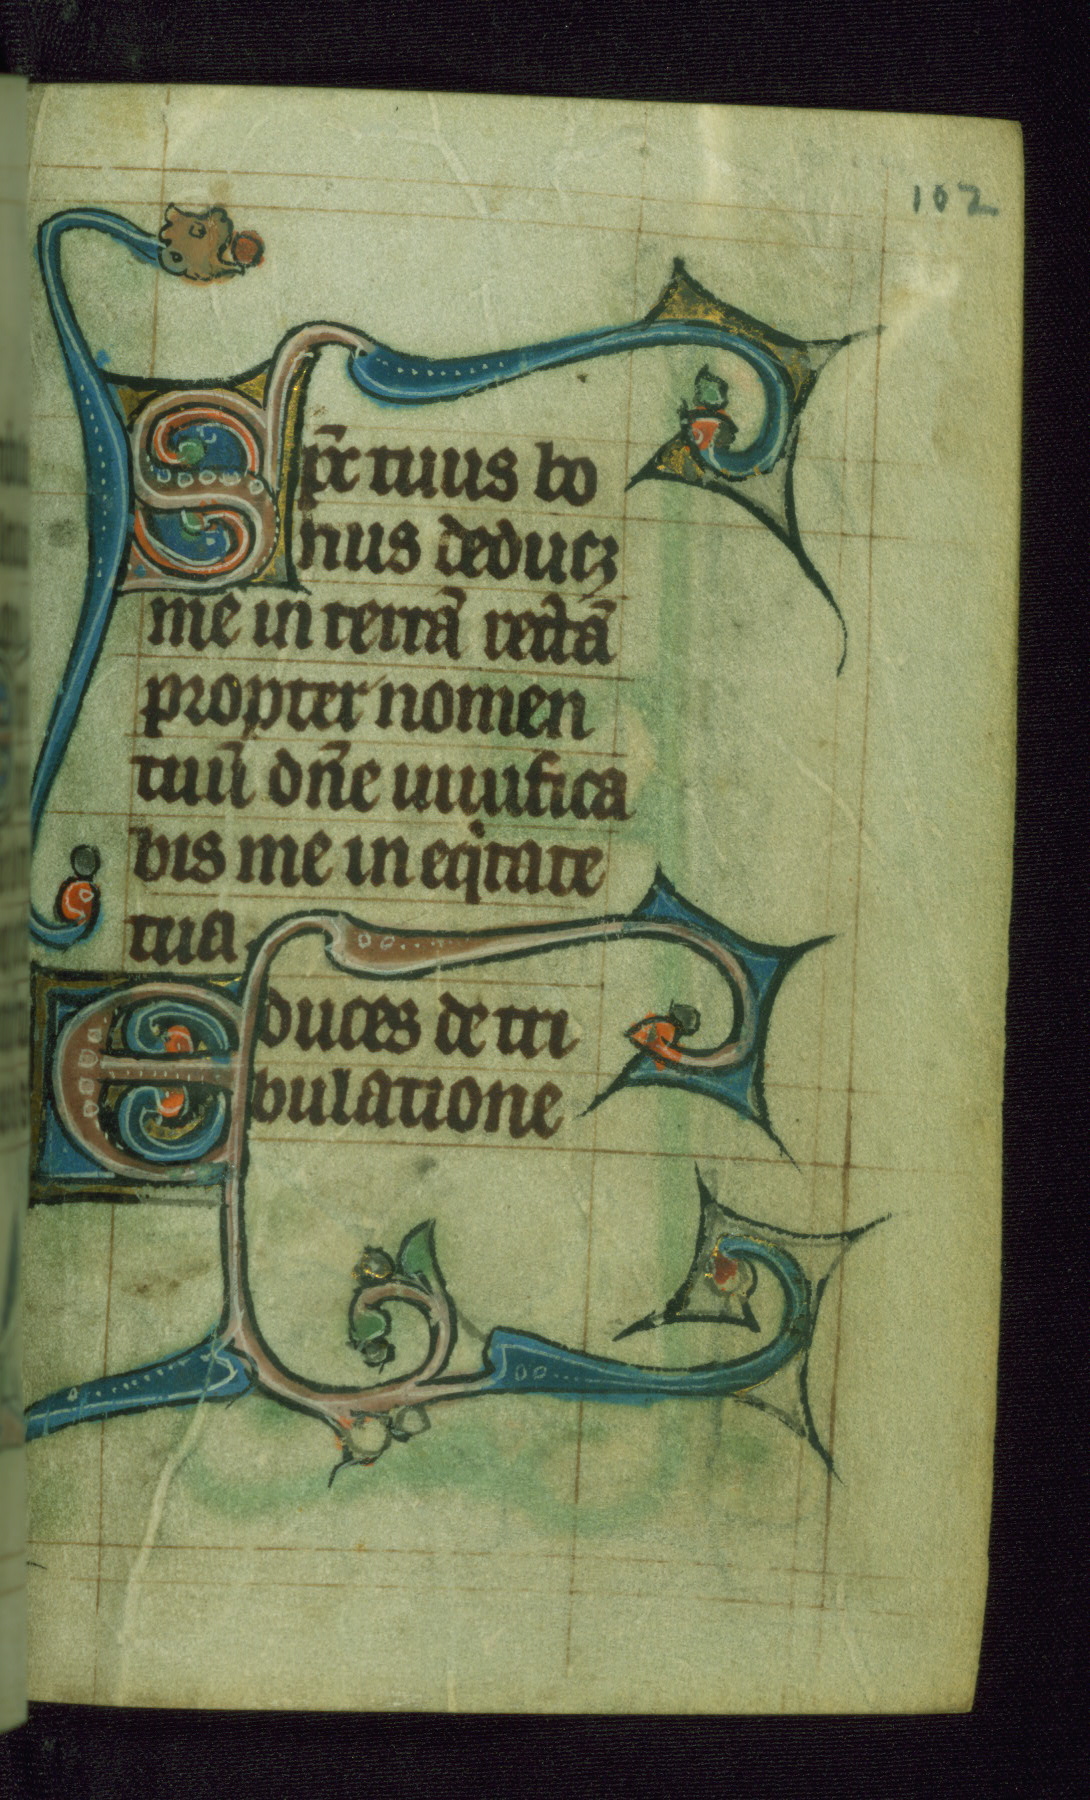 102
Sp̄c tuus bo
nus deducꝫ
me in terrā rectā
propter nomen
tuū dn̄e uiuifica
bis me in eqͥtate
tua
Educes de tri
bulatione